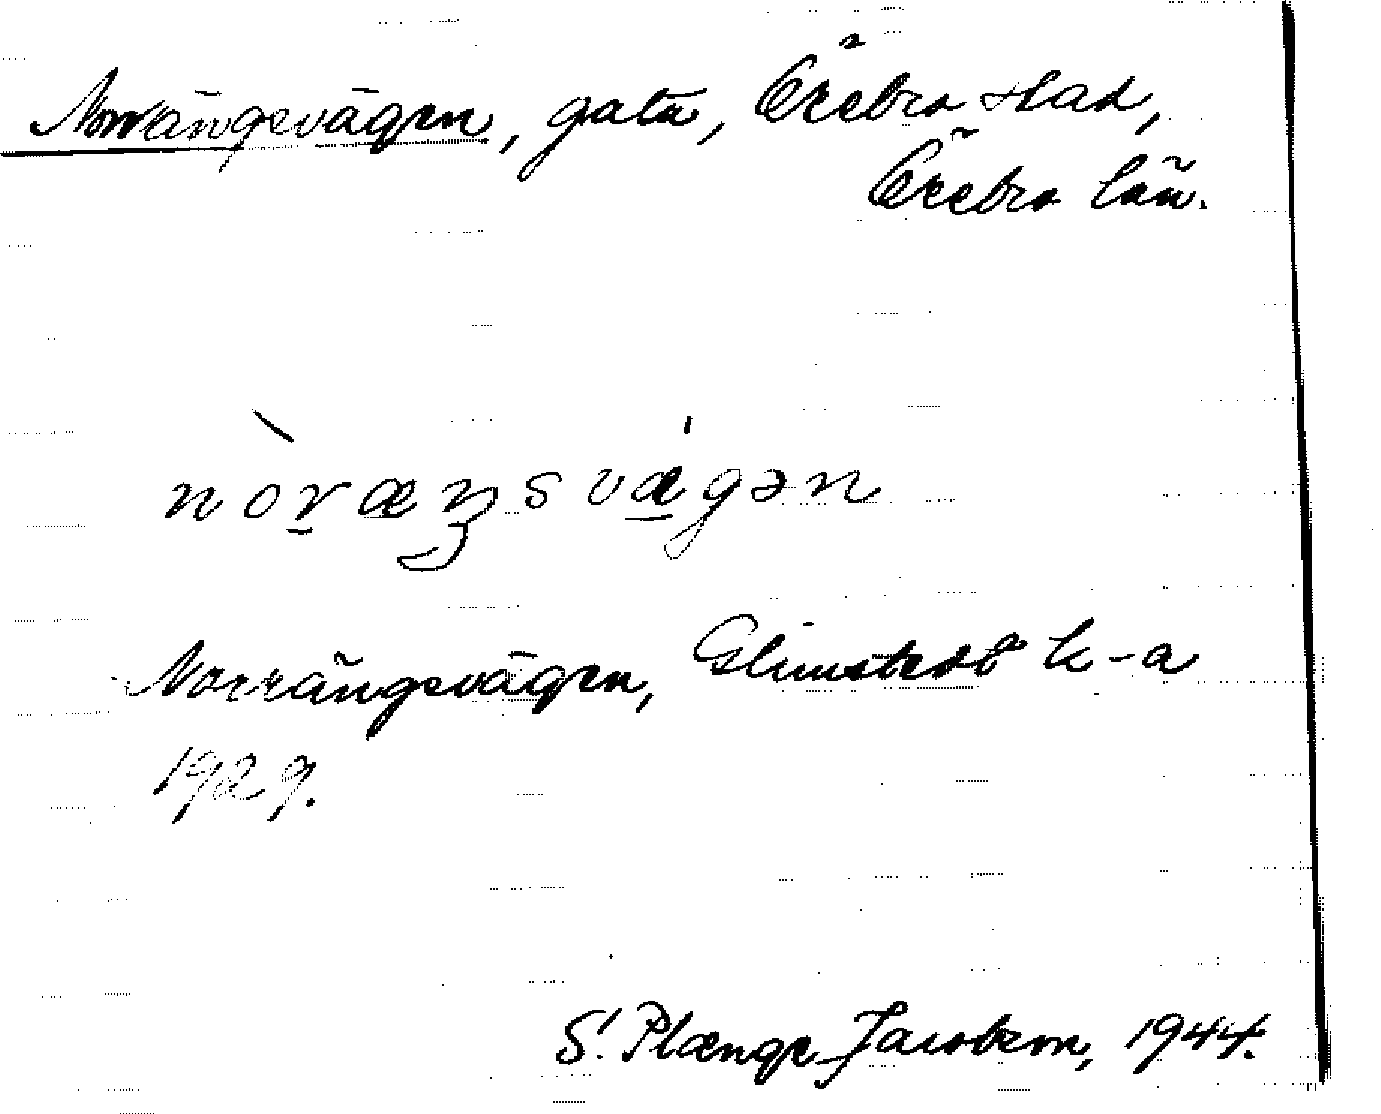 Norrängsvägen, gata, Örebro stad,
Örebro län.
nòræŋsvægən
Norrängsvägen, Glimstedt k-a
1929.
S. Plænge Jacobson, 1944.